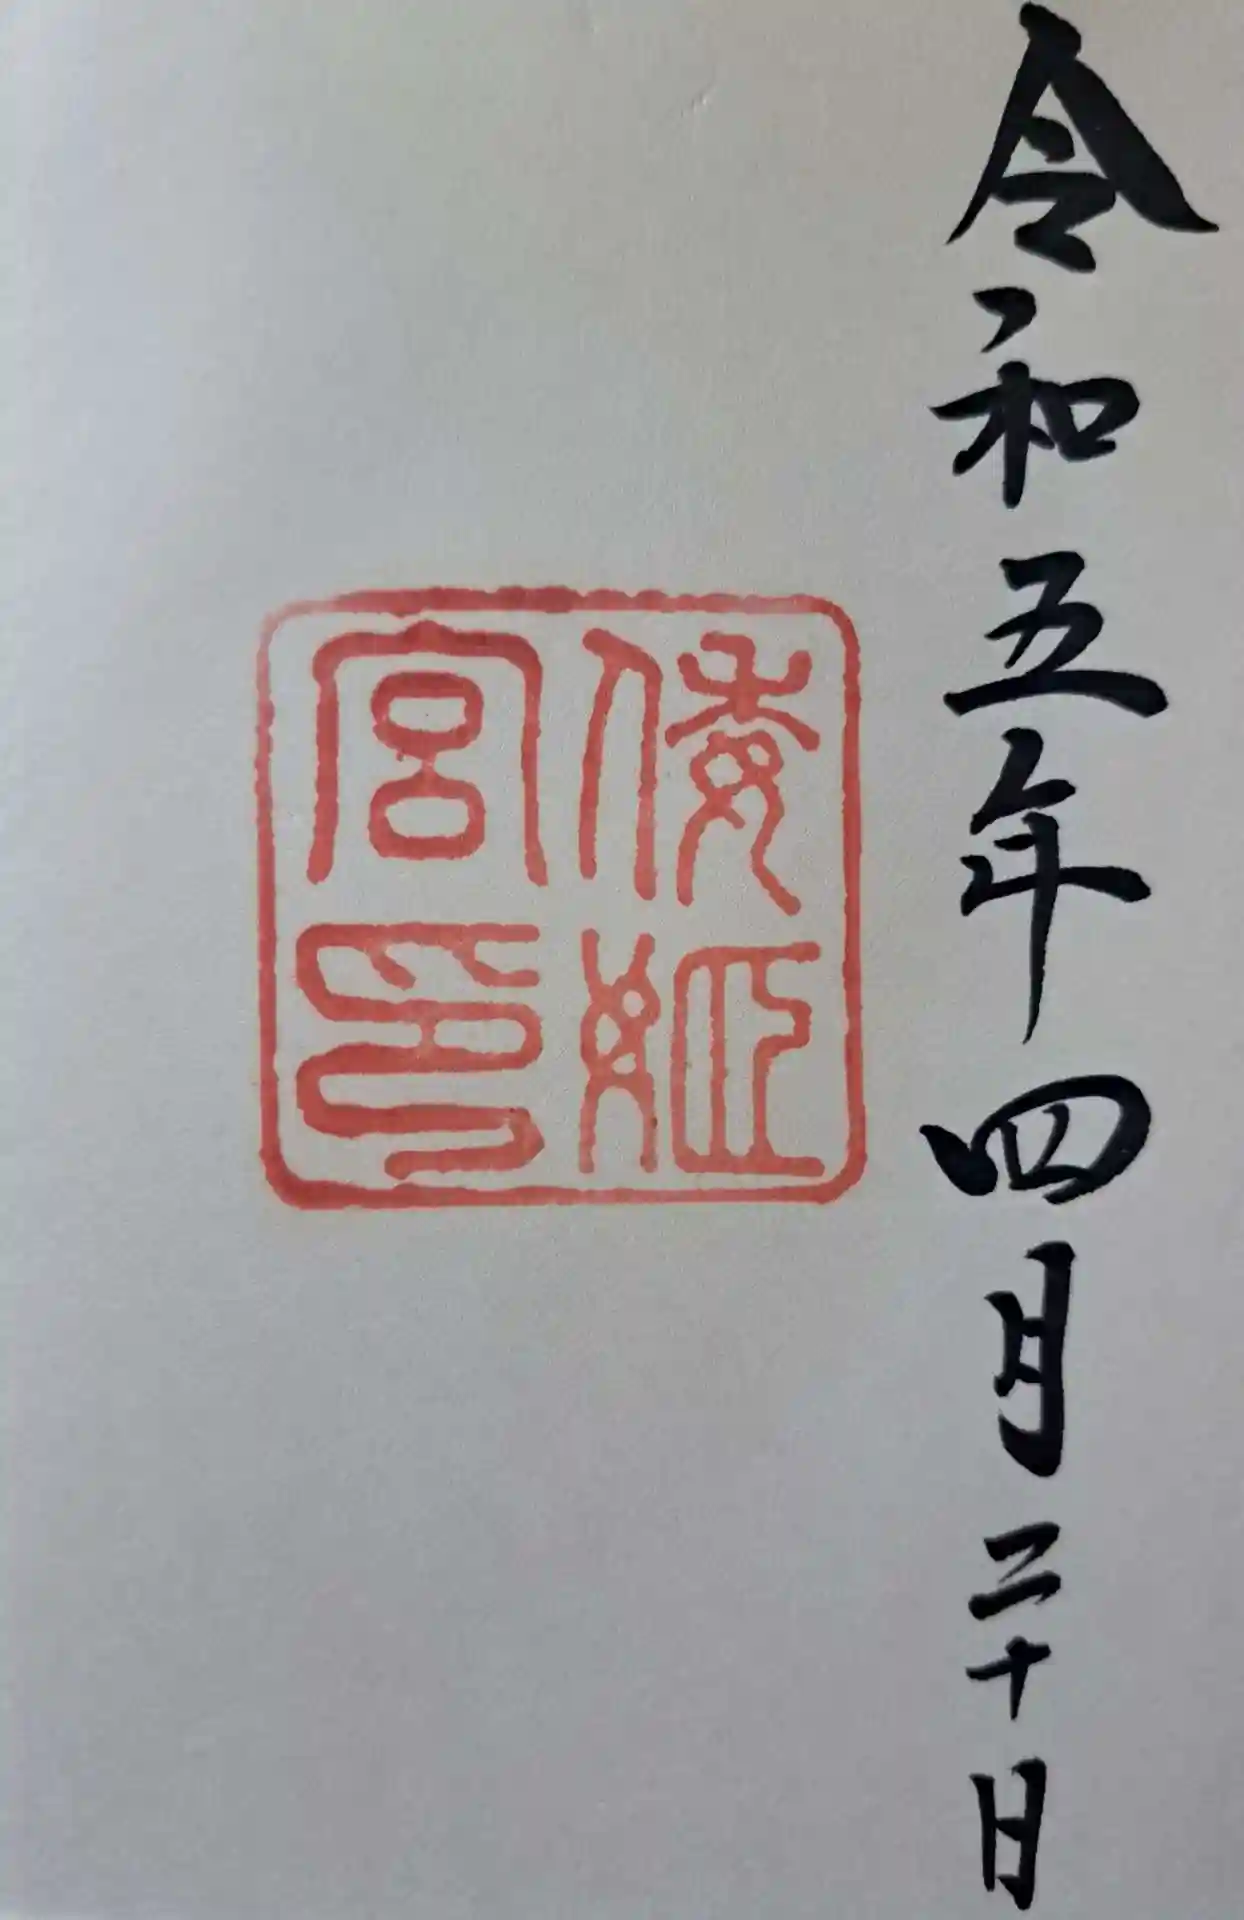 令和五年四月二十日
倭姫
宮印